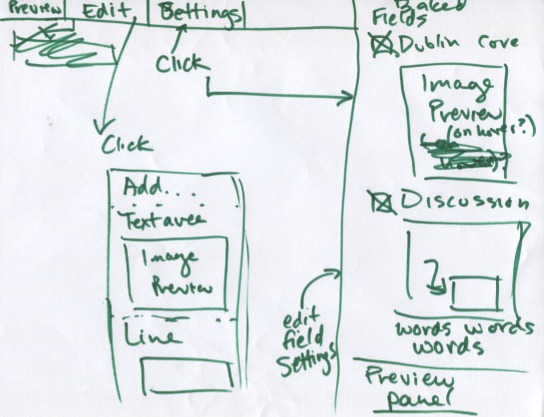 Preview Edit Settings
Click
Click
Add...
Textarea
Image
Preview
Line
edit
field
settings
Baked
Fields
Dublin Core
Image
Preview
(on hover?)
Discussion
words words
words
Preview
panel